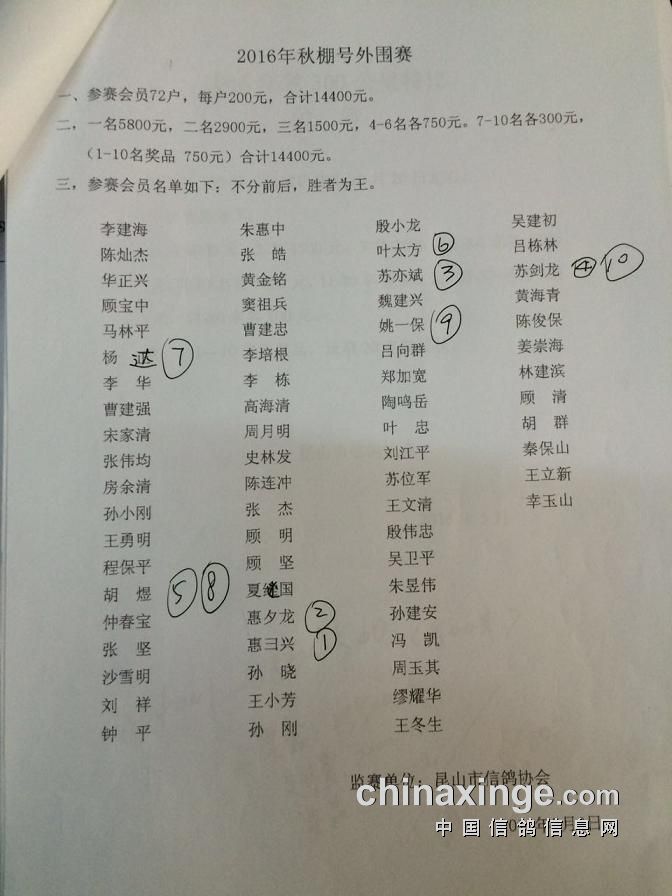 2016年秋棚号外围赛
一、参赛会员72户，每户200元，合计14400元。
二，一名5800元，二名2900元，三名1500元，4-6名各750元。7-10名各300元，
（1-10名奖品 750元）合计14400元。
三，参赛会员名单如下：不分前后，胜者为王。
李建海 朱惠中 殷小龙 吴建初
陈灿杰 张 皓 叶太方 ⑥ 吕栋林
华正兴 黄金铭 苏亦斌 ③ 苏剑龙 ④ ⑩
顾宝中 窦祖兵 魏建兴 黄海青
马林平 曹建忠 姚一保 ⑨ 陈俊保
杨 达 ⑦ 李培根 吕向群 姜崇海
李 华 李 栋 郑加宽 林建滨
曹建强 高海清 陶鸣岳 顾 清
宋家清 周月明 叶 忠 胡 群
张伟均 史林发 刘江平 秦保山
房余清 陈连冲 苏位军 王立新
孙小刚 张 杰 王文清 幸玉山
王勇明 顾 明 殷伟忠
程保平 顾 坚 吴卫平
胡 煜 ⑤ ⑧ 夏 国 朱昱伟
仲春宝 惠夕龙 ② 孙建安
张 坚 惠彐兴 ① 冯 凯
沙雪明 孙 晓 周玉其
刘 祥 王小芳 缪耀华
钟 平 孙 刚 王冬生
监赛单位：昆山市信鸽协会
chinaxinge.com
中国信鸽信息网